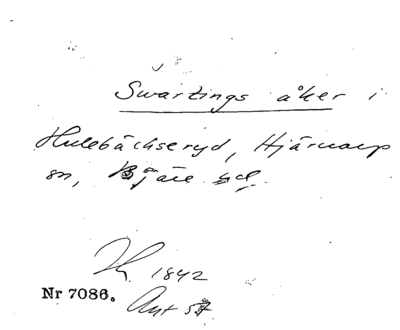 Swartings åker i
Hulebäckseryd, Hjärnarp
sn, Bjäre hd.
1842
Nr 7086. Ant 57